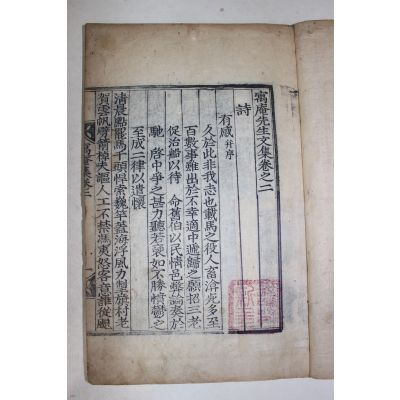 寓庵先生文集卷之二
詩
有感 幷序
久於此非我志也載馬之役人畜渰死多至
百數事雖出於不幸適中遞歸之願招三老
促治船以待 命舊伯以民情邑弊論奏於
馳 啓中爭之甚力聽若褎如不勝憤鬱之
至成二律以遣懷
淸晨點罷馬千頭悍索巍竿蓋海浮風力掣旗村老
賀雲帆勝箭棹夫謳人工不禁馮夷怒客意難從颶